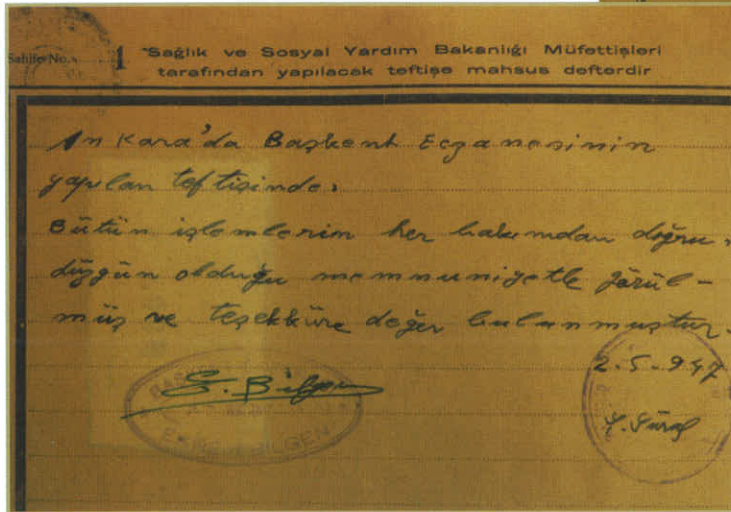 Sahife No. 1
"Sağlık ve Sosyal Yardım Bakanlığı Müfettişleri
tarafından yapılacak teftişe mahsus defterdir
Ankara'da Başkent Eczanesinin
yapılan teftişinde:
Bütün işlemlerin her bakımdan doğru,
düzgün olduğu memnuniyetle görül-
müş ve teşekküre değer bulunmuştur.
2.5.947
E. Bilgen
EKREM BİLGEN